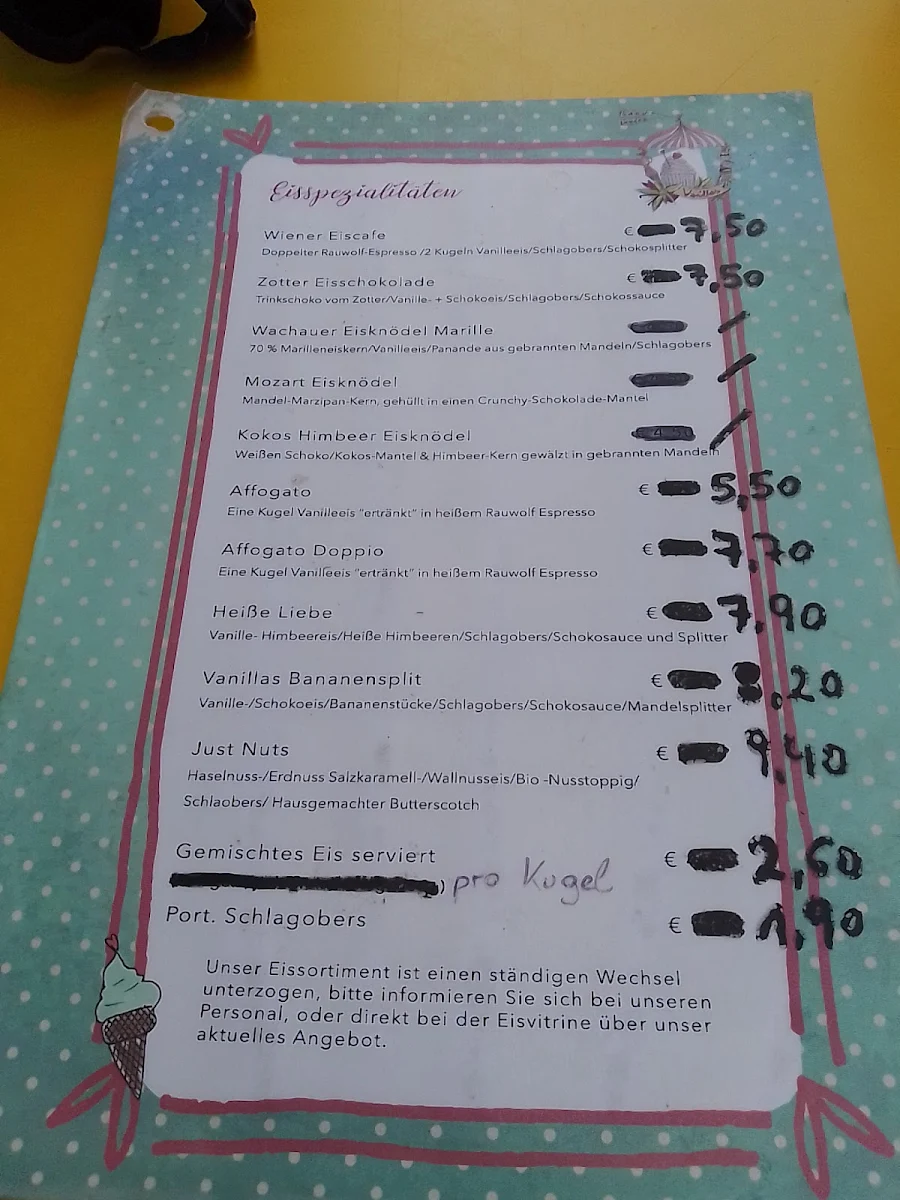 Eisspezialitäten
Wiener Eiscafe € 7,50
Doppelter Rauwolf-Espresso /2 Kugeln Vanilleeis/Schlagobers/Schokosplitter
Zotter Eisschokolade € 7,50
Trinkschoko vom Zotter/Vanille- + Schokoeis/Schlagobers/Schokossauce
Wachauer Eisknödel Marille
70 % Marilleneiskern/Vanilleeis/Panande aus gebrannten Mandeln/Schlagobers
Mozart Eisknödel
Mandel-Marzipan-Kern, gehüllt in einen Crunchy-Schokolade-Mantel
Kokos Himbeer Eisknödel
Weißen Schoko/Kokos-Mantel & Himbeer-Kern gewälzt in gebrannten Mandeln
Affogato € 5,50
Eine Kugel Vanilleeis "ertränkt" in heißem Rauwolf Espresso
Affogato Doppio € 7,70
Eine Kugel Vanilleeis "ertränkt" in heißem Rauwolf Espresso
Heiße Liebe € 7,90
Vanille- Himbeereis/Heiße Himbeeren/Schlagobers/Schokosauce und Splitter
Vanillas Bananensplit € 8,20
Vanille-/Schokoeis/Bananenstücke/Schlagobers/Schokosauce/Mandelsplitter
Just Nuts € 9,40
Haselnuss-/Erdnuss Salzkaramell-/Wallnusseis/Bio -Nusstoppig/
Schlaobers/ Hausgemachter Butterscotch
Gemischtes Eis serviert € 2,60
) pro Kugel
Port. Schlagobers € 1,90
Unser Eissortiment ist einen ständigen Wechsel
unterzogen, bitte informieren Sie sich bei unseren
Personal, oder direkt bei der Eisvitrine über unser
aktuelles Angebot.